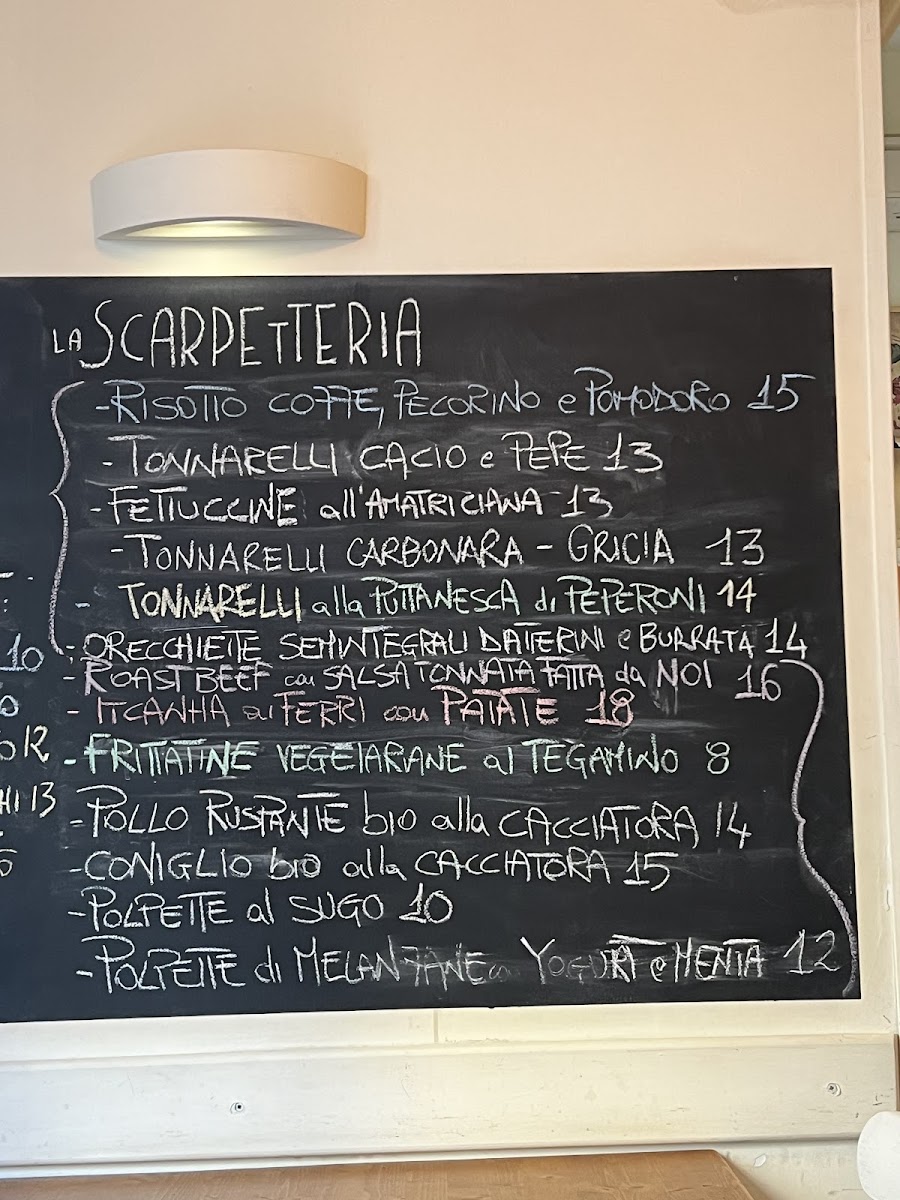 LA SCARPETTERIA
- RISOTTO COFFE, PECORINO e POMODORO 15
- TONNARELLI CACIO e PEPE 13
- FETTUCCINE all'AMATRICIANA 13
- TONNARELLI CARBONARA - GRICIA 13
- TONNARELLI alla PUTTANESCA di PEPERONI 14
- ORECCHIETTE SEMINTEGRALI DATTERINI e BURRATA 14
- ROAST BEEF con SALSA TONNATA FATTA da NOI 16
- ai FERRI con PATATE 18
- FRITTATINE VEGETARIANE al TEGAMINO 8
- POLLO RUSPANTE bio alla CACCIATORA 14
- CONIGLIO bio alla CACCIATORA 15
- POLPETTE al SUGO 10
- POLPETTE di MELANZANE YOGURT e MENTA 12
10
12
13